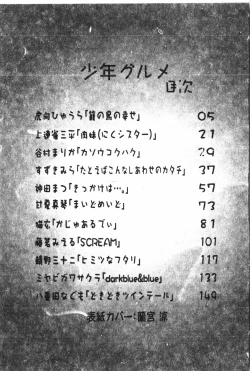 少年グルメ
目次
虎向ひゅうら「籠の鳥の幸せ」 05
上連雀三平「肉妹(にくシスター)」 21
谷村まりか「カソウコウハク」 29
すずきみら「たとえばこんなしあわせのカタチ」 37
神田まつ「きっかけは…。」 57
甘夏真琴「まいどめいど」 73
猫玄「かじゅあるでぃ」 81
藤名みえる「SCREAM」 101
鏡野三十二「ヒミツなフタリ」 117
ミヤビガワサクラ「darkblue&blue」 133
八重田なども「どきどきツインテール」 149
表紙カバー:蘭宮 涼